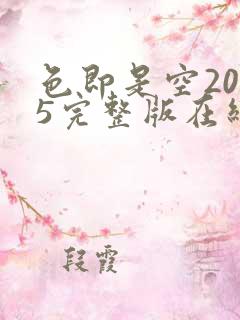 色即是空20
5完整版在线
段霞